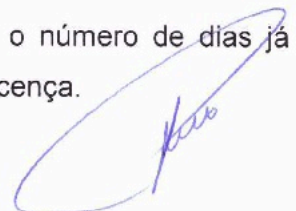 o número de dias já
cença.